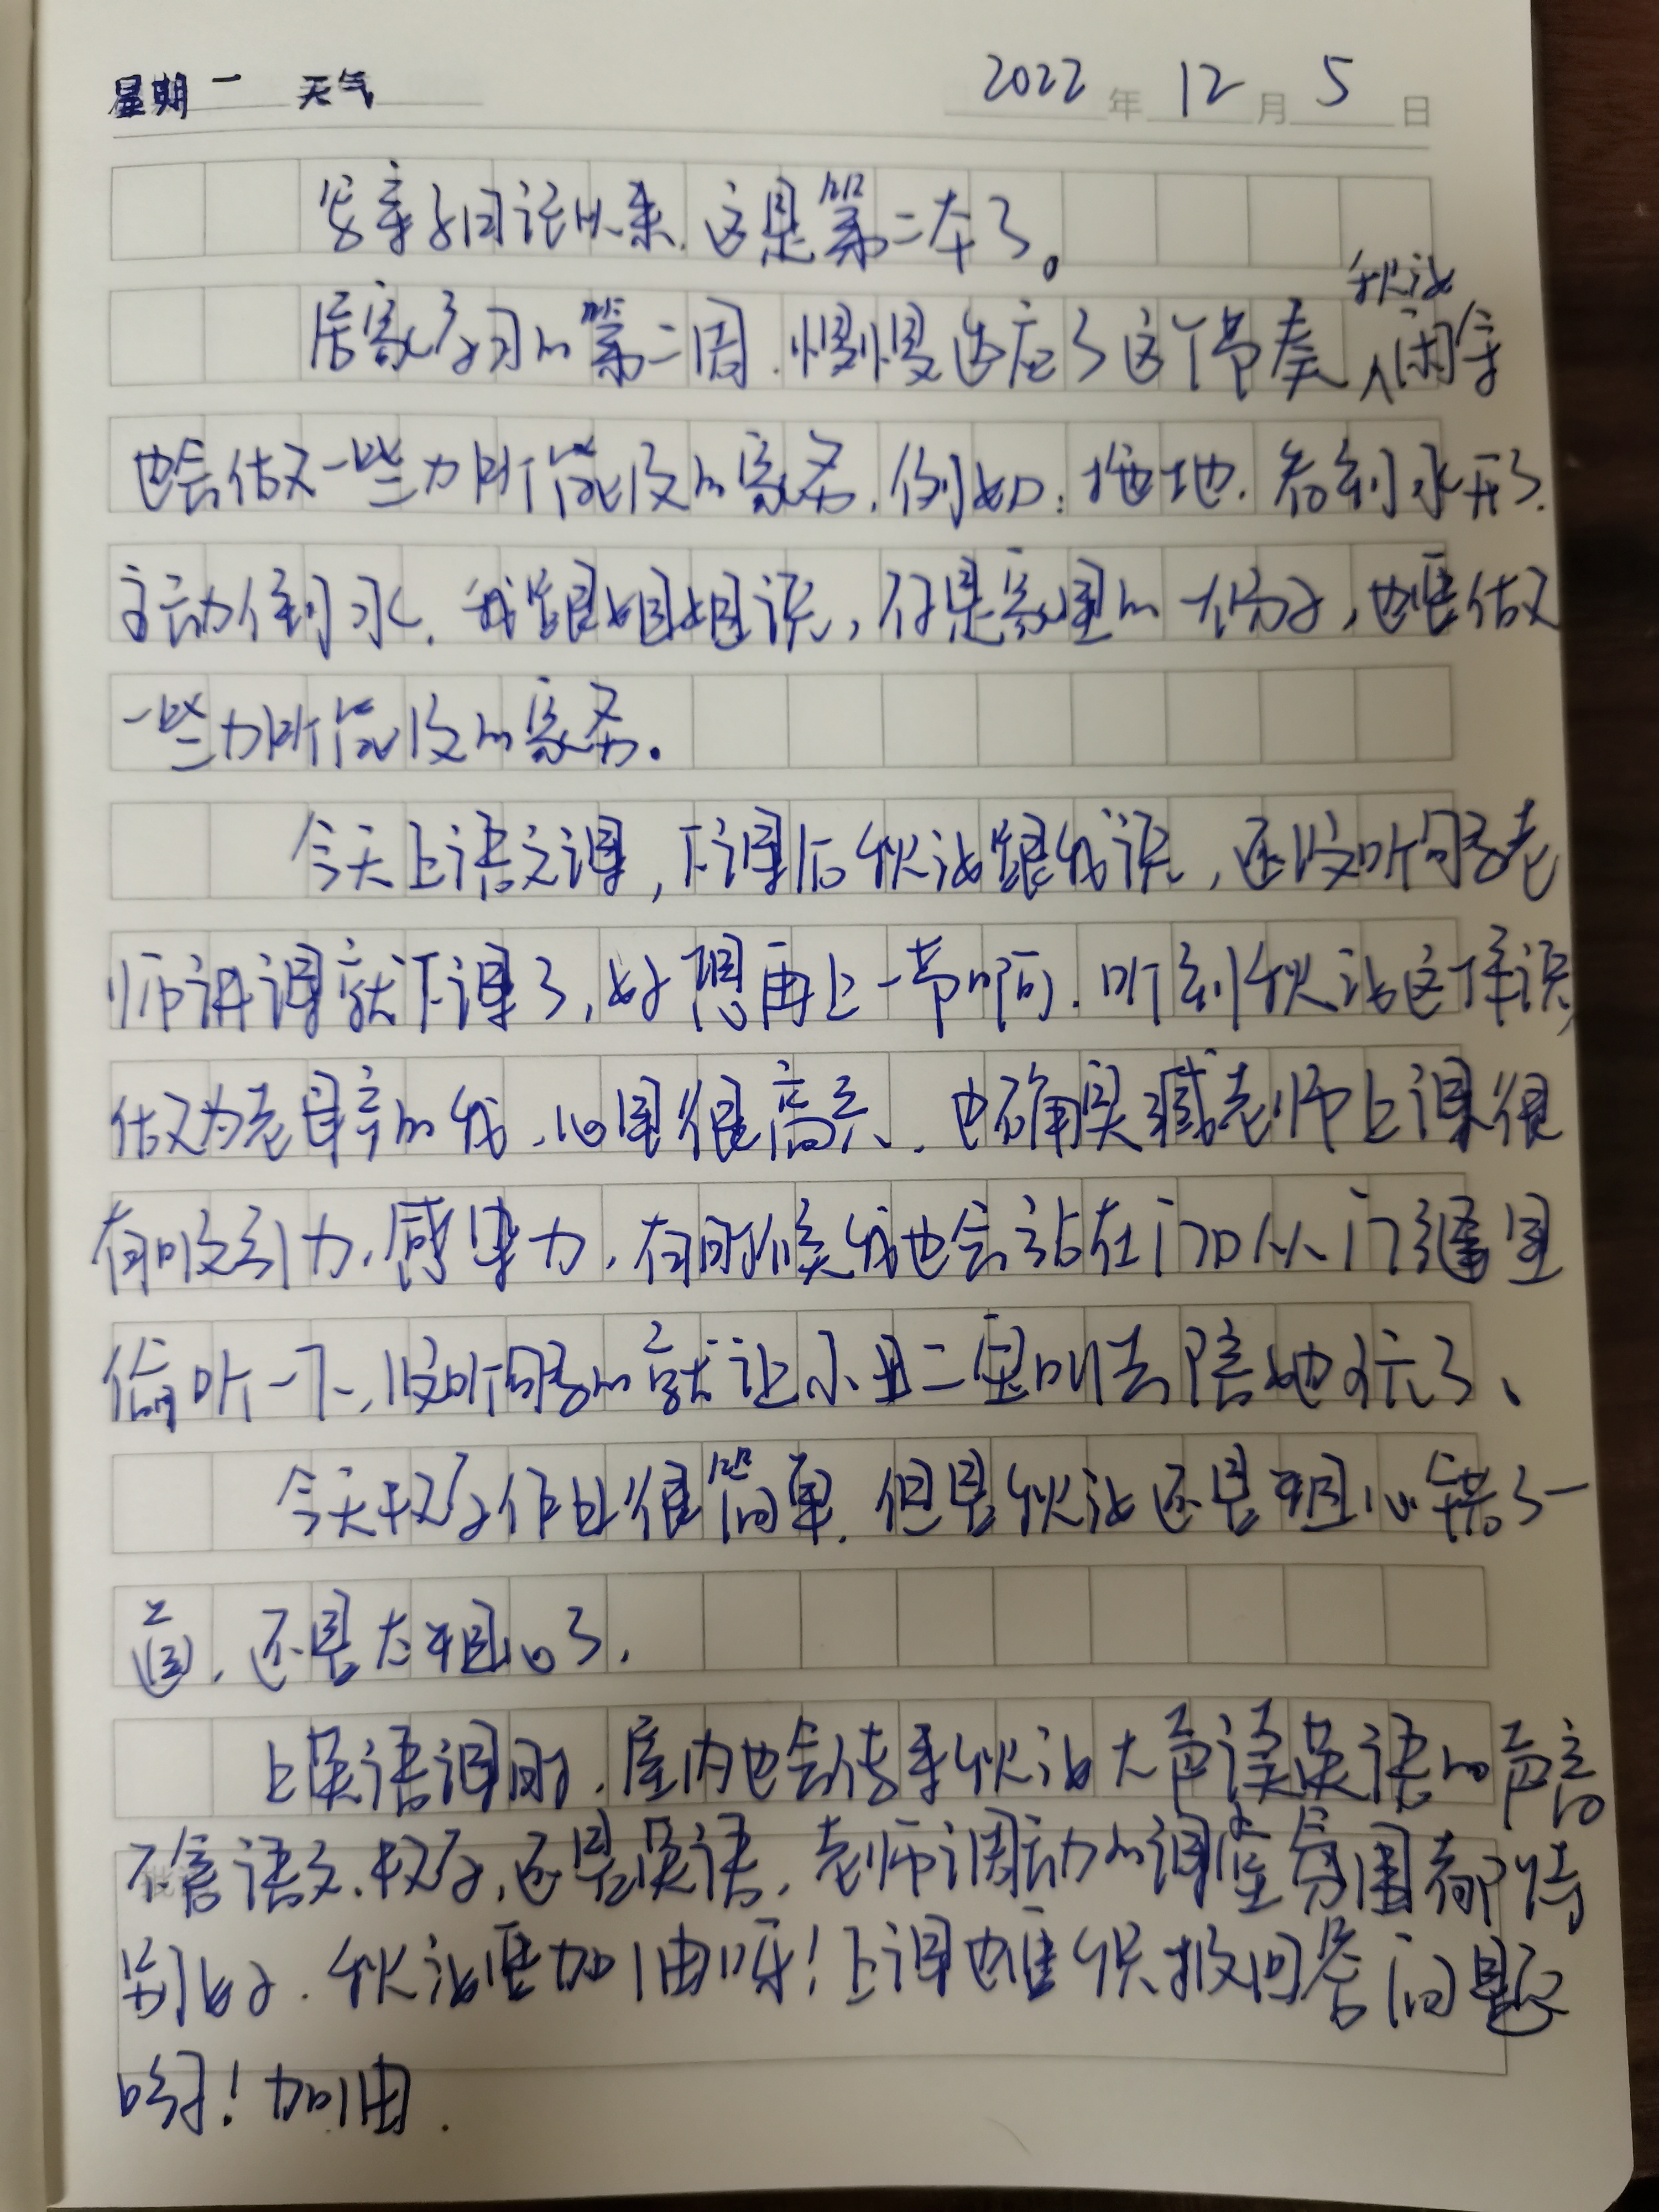 星期 一 天气 2022 年 12 月 5 日
写亲子日记以来,这是第二本了。
居家学习的第二周,慢慢适应了这个节奏秋涵闲余
也会做一些力所能及的家务,例如:拖地,看到水开了,
主动倒水,我跟姐姐说,你是家里的一份子,也要做
一些力所能及的家务。
今天上语文课,下课后秋涵跟我说,还没听够老
师讲课就下课了,好想再上一节啊,听到秋涵这样说,
做为老母亲的我,心里很高兴,也确实臧老师上课很
有吸引力,感染力,有时候我也会站在门口从门缝里
偷听一下,没听够的就让小丑二宝叫去陪她玩了、
今天数学作业很简单,但是秋涵还是粗心错了一
道,还是太粗心了,
上英语课时,屋内也会传来秋涵大声读英语的声音
不管语文,数学,还是英语,老师调动的课堂氛围都特
别好,秋涵要加油呀!上课也要积极回答问题
哟!加油.